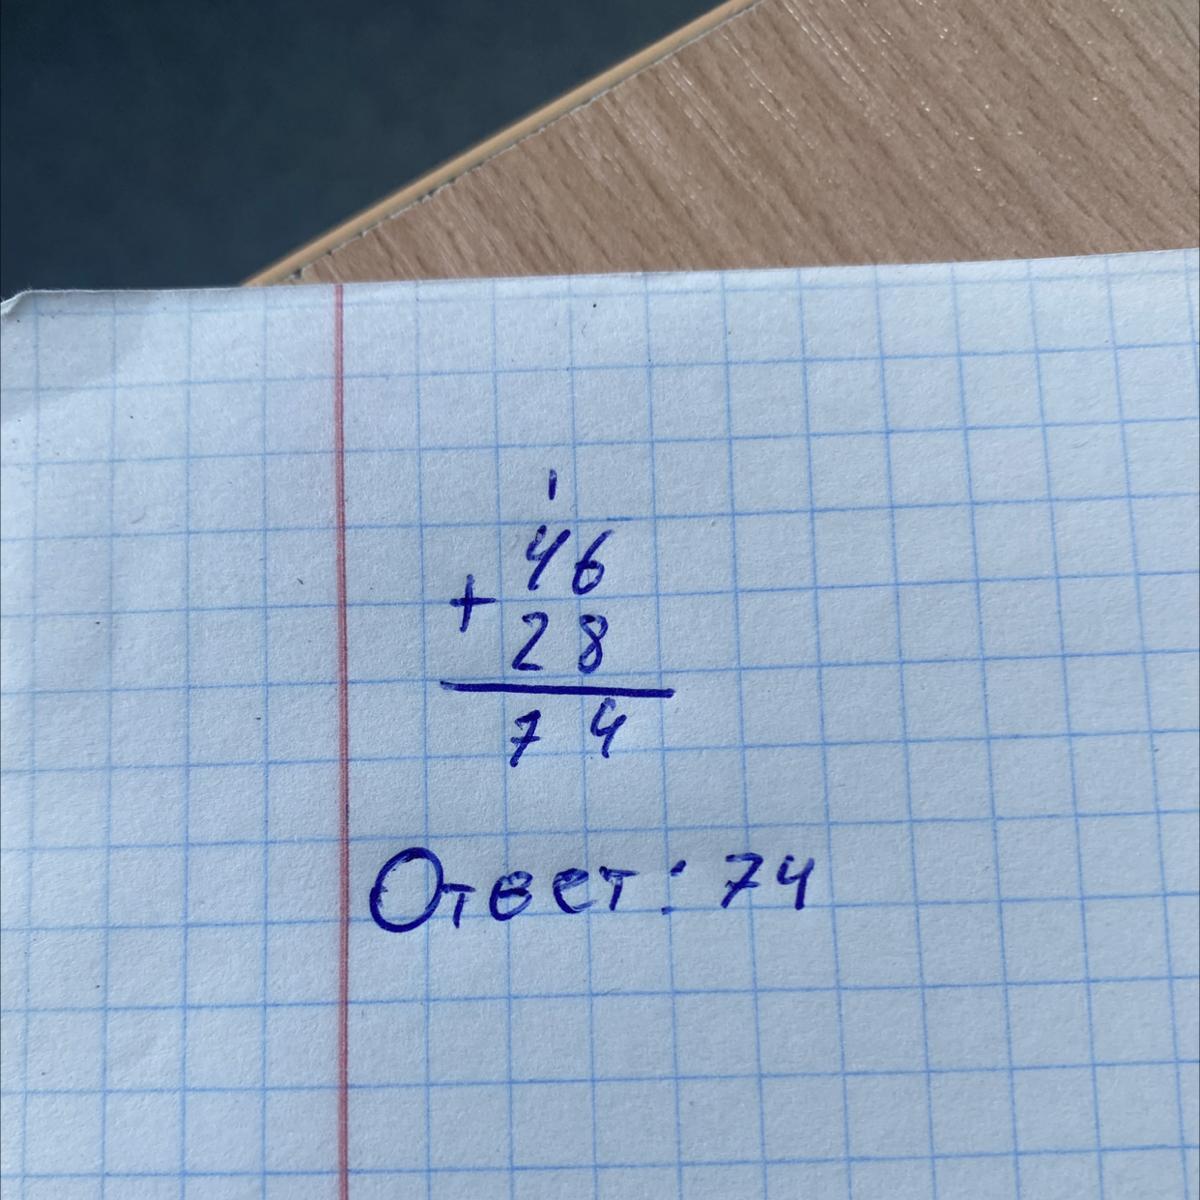 1
46
+
28
74
Ответ: 74